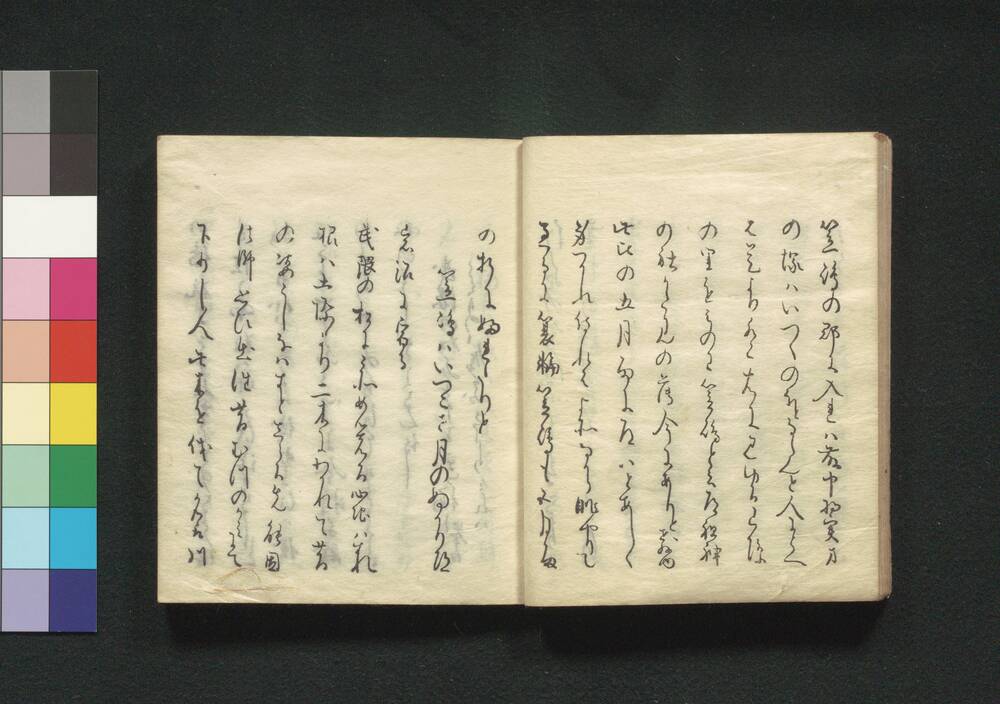 笠嶋の郡に入れは藤中将実方
の塚はいつくのほとならんと人にとへ
は是より遥右に見ゆる山際
の里をみのわ笠嶋と云道祖神
の社かた見の薄今にありと教ゆ
此比の五月雨に道いとあしく
身つかれ侍れはよそなから眺やりて
過るに蓑輪笠嶋も五月雨
の折にふれたりと
笠嶋はいつこさ月のぬかり道
岩沼に宿る
武隈の松にこそめ覚る心地はすれ
根は土際より二木にわかれて昔
の姿うしなはすとしらる先能因
法師思ひ出往昔むつのかみにて
下りし人此木を伐て名取川